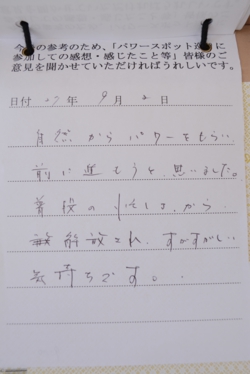 今後の参考のため、「パワースポット巡りに
参加しての感想・感じたこと等」皆様のご
意見を聞かせていただければうれしいです。
日付 27年 9月 2日
自然からパワーをもらい
前に進もうと思いました。
普段の忙しさから
解放され、すがすがしい
気持ちです。